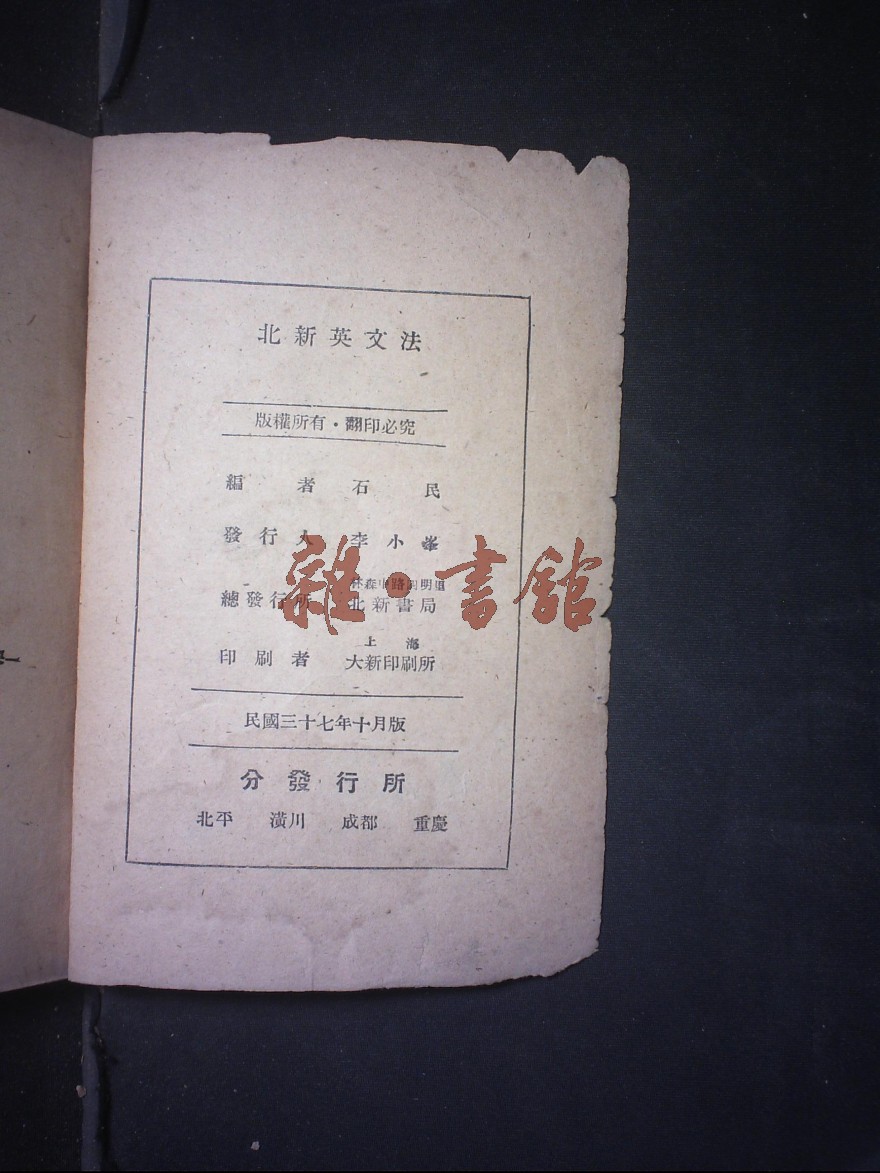 北新英文法
版權所有·翻印必究
編者 石民
發行人 李小峯
林森中路
總發行所 北新書局
上海
印刷者 大新印刷所
民國三十七年十月版
分發行所
北平 潢川 成都 重慶
雜·書館